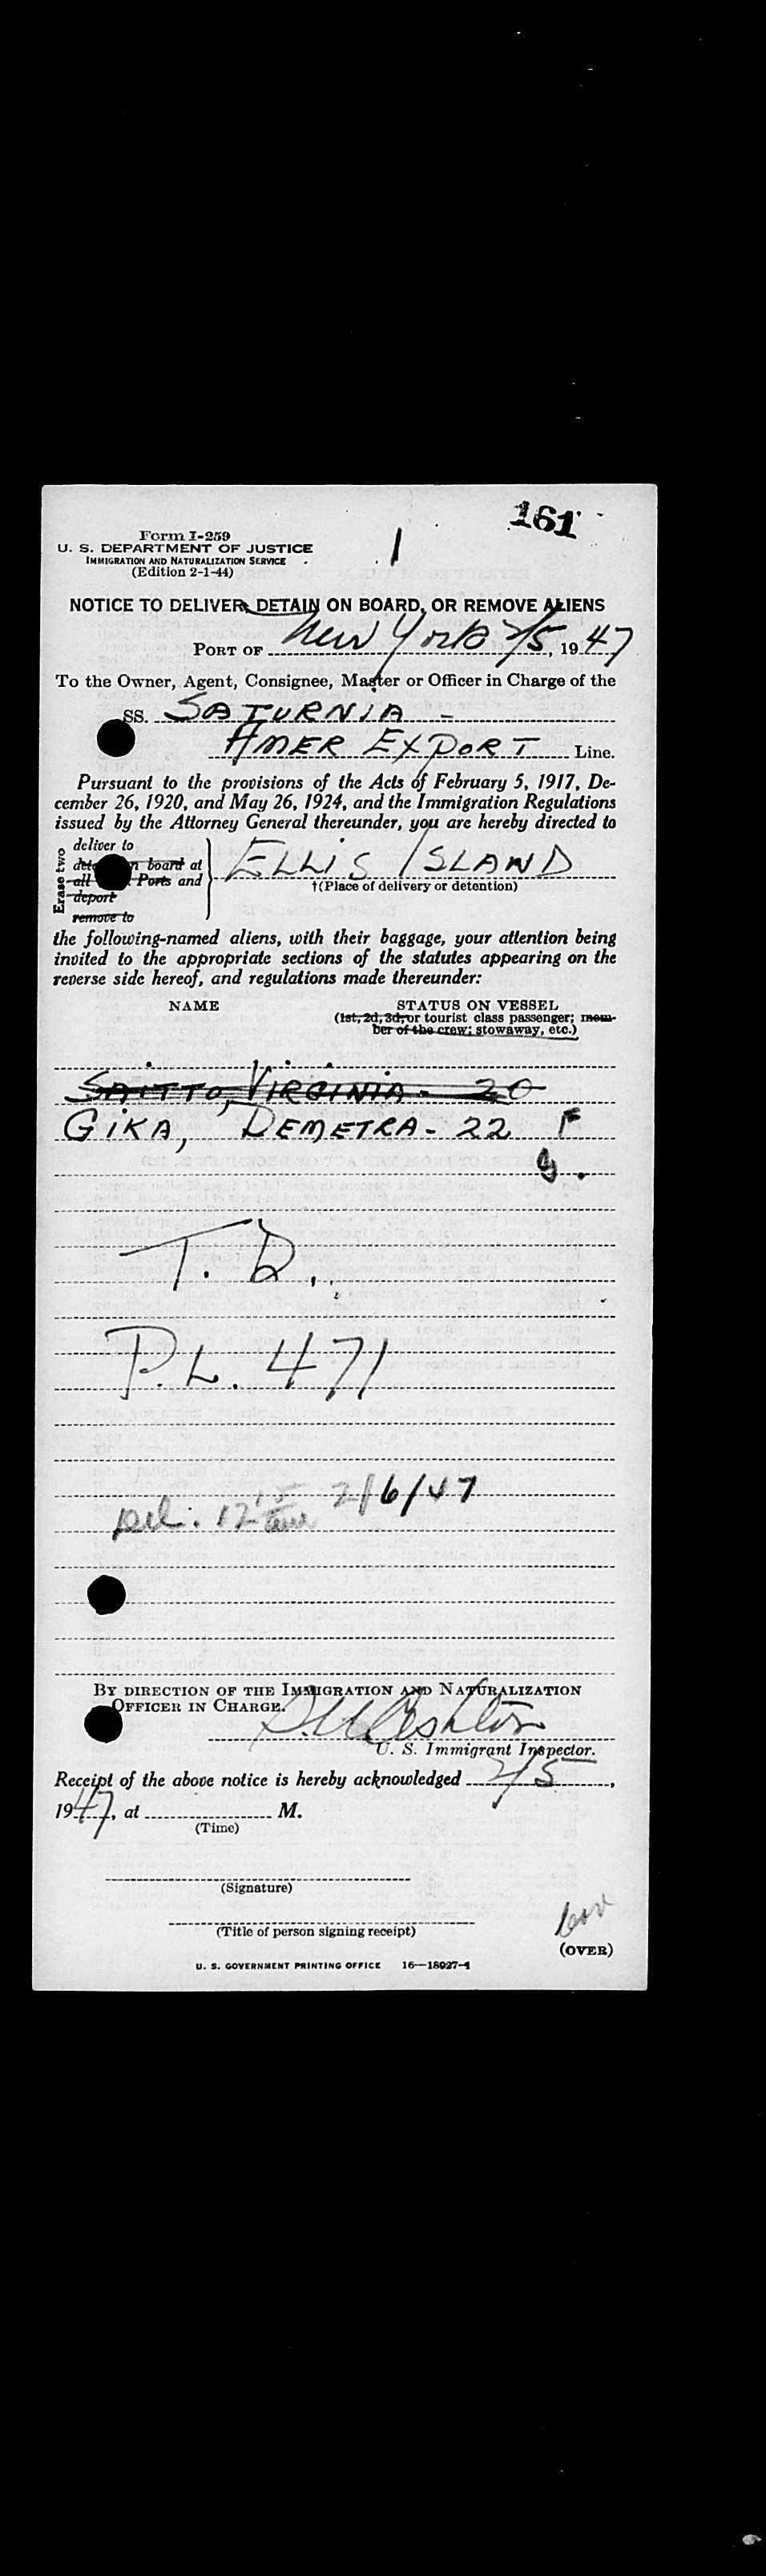 161
Form I-259
1
U. S. DEPARTMENT OF JUSTICE
IMMIGRATION AND NATURALIZATION SERVICE
(Edition 2-1-44)
NOTICE TO DELIVER, DETAIN ON BOARD, OR REMOVE ALIENS
PORT OF New York 2/5, 1947
To the Owner, Agent, Consignee, Master or Officer in Charge of the
SS. SATURNIA -
AMER EXPORT Line.
Pursuant to the provisions of the Acts of February 5, 1917, De-
cember 26, 1920, and May 26, 1924, and the Immigration Regulations
issued by the Attorney General thereunder, you are hereby directed to
Erase two
deliver to
board at
all Ports and
deport
remove to
ELLIS ISLAND
†(Place of delivery or detention)
the following-named aliens, with their baggage, your attention being
invited to the appropriate sections of the statutes appearing on the
reverse side hereof, and regulations made thereunder:
NAME STATUS ON VESSEL
(1st, 2d, 3d, or tourist class passenger; mem-
ber of the crew; stowaway, etc.)
SAITTO, VIRGINIA - 20
GIKA, DEMETRA - 22 F
T. D.
P.L. 471
Del: 12 2/6/47
BY DIRECTION OF THE IMMIGRATION AND NATURALIZATION
OFFICER IN CHARGE.
U. S. Immigrant Inspector.
Receipt of the above notice is hereby acknowledged 2/5,
1947, at M.
(Time)
(Signature)
(Title of person signing receipt)
(OVER)
U. S. GOVERNMENT PRINTING OFFICE 16—18927-1